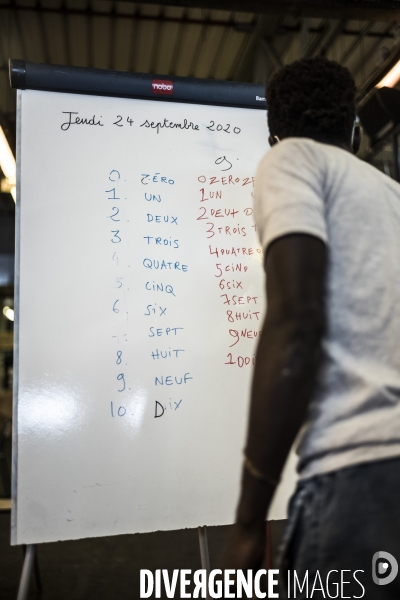 nobo
Jeudi 24 septembre 2020
0. ZÉRO
1. UN
2. DEUX
3 TROIS
4. QUATRE
5. CINQ
6. SIX
SEPT
8. HUIT
9. NEUF
10. DIX
g.
0 ZERO
1 UN
2 DEUT
3 TROIS
4 OUATRE
5 CINQ
6 SIX
7 SEPT
8 HUIT
9 NEUF
1 DOI
DIVERGENCE IMAGES